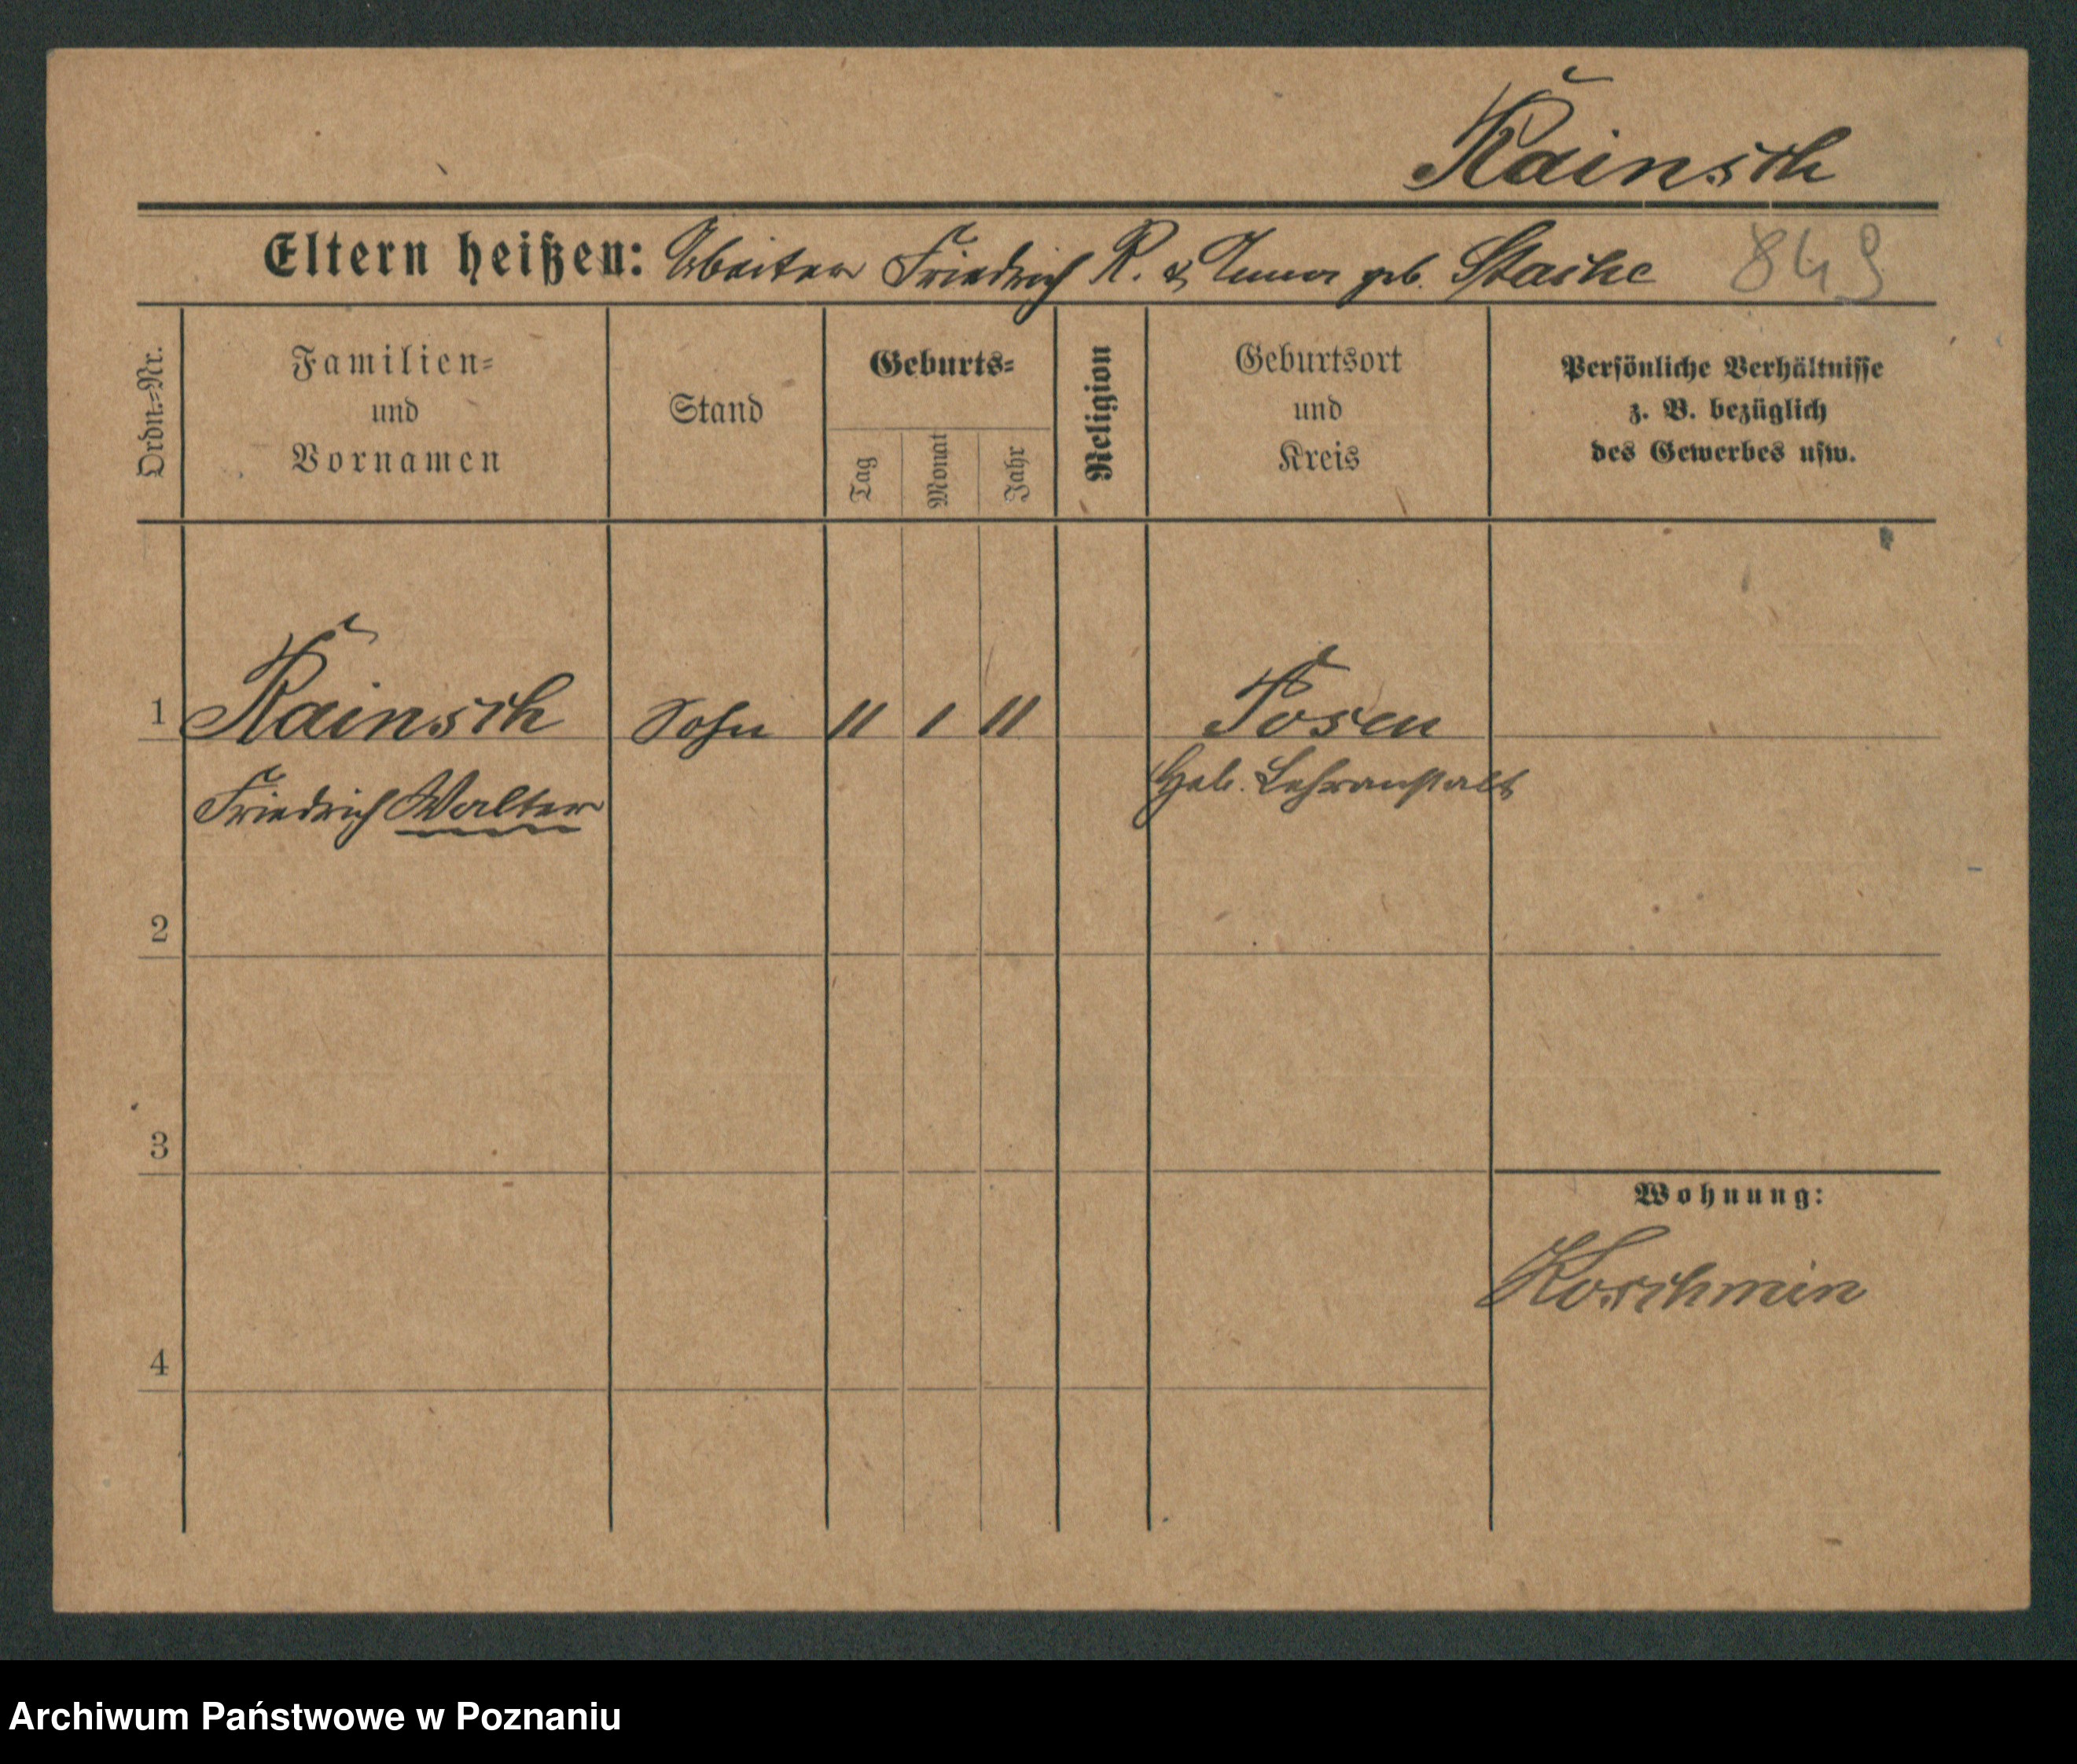 Rainsch
Eltern heißen: Arbeiter Friedrich R. & Anna geb. Staske 849
Ordn.=Nr.
Familien=
und
Vornamen
Stand
Geburts=
Tag
Monat
Jahr
Religion
Geburtsort
und
Kreis
Persönliche Verhältnisse
z. B. bezüglich
des Gewerbes usw.
1 Rainsch Sohn 11 1 11 Posen
Friedrich Walter Heb. Lehranstalt
2
3
Wohnung:
Koschmin
4
Archiwum Państwowe w Poznaniu